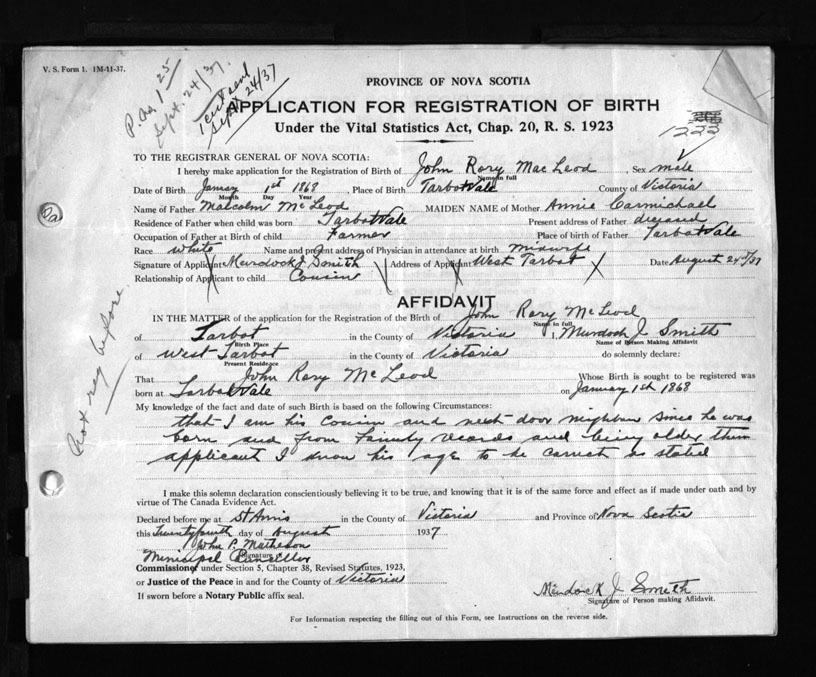 V. S. Form 1. 1M-11-37.
P. Aq 1 25
Sept. 24/37.
1 cert send
Sept. 24/37
PROVINCE OF NOVA SCOTIA
APPLICATION FOR REGISTRATION OF BIRTH
Under the Vital Statistics Act, Chap. 20, R. S. 1923
TO THE REGISTRAR GENERAL OF NOVA SCOTIA:
I hereby make application for the Registration of Birth of John Rory Mac Leod, Sex male
Name in full
Date of Birth January 1st 1868, Place of Birth Tarbot Vale County of Victoria
Month Day Year
Name of Father Malcolm McLeod MAIDEN NAME of Mother Annie Carmichael
Residence of Father when child was born Tarbot Vale Present address of Father diseased
Occupation of Father at Birth of child Farmer Place of birth of Father Tarbot Vale
Race White Name and present address of Physician in attendance at birth midwife
Signature of Applicant Murdock J. Smith Address of Applicant West Tarbot Date August 24th/37
Relationship of Applicant to child Cousin
AFFIDAVIT
IN THE MATTER of the application for the Registration of the Birth of John Rory McLeod
Name in full
of Tarbot in the County of Victoria I, Murdock J Smith
Birth Place
Name of Person Making Affidavit
of West Tarbot in the County of Victoria do solemnly declare:
Present Residence
That John Rory McLeod Whose Birth is sought to be registered was
born at Tarbot Vale on January 1st 1868
My knowledge of the fact and date of such Birth is based on the following Circumstances:
that I am his Cousin and next door nighbour since he was
born and from Family records and being older then
applicant I know his age to be correct as stated
I make this solemn declaration conscientiously believing it to be true, and knowing that it is of the same force and effect as if made under oath and by
virtue of The Canada Evidence Act.
Declared before me at St Anns in the County of Victoria and Province of Nova Scotia
this Twentyfourth day of August 1937
John P. Matheson
Signature
Municipal Councillor
Commissioner under Section 5, Chapter 38, Revised Statutes, 1923,
or Justice of the Peace in and for the County of Victoria
If sworn before a Notary Public affix seal.
Murdock J Smith
Signature of Person making Affidavit.
For Information respecting the filling out of this Form, see Instructions on the reverse side.
Not reg before